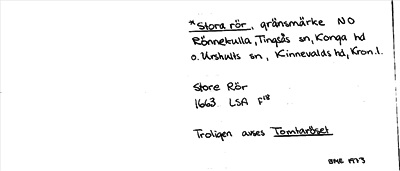 *Stora rör, gränsmärke NO
Rönnekulla, Tingsås sn, Konga hd
o. Urshults sn, Kinnevalds hd, Kron.l.
Store Rör
1663 LSA F18
Troligen avses Tomtaröset
BME 1973